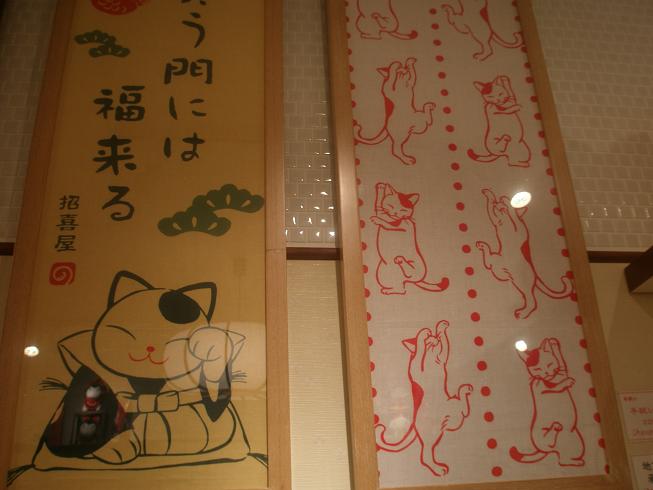 う門には
福来る
招喜屋